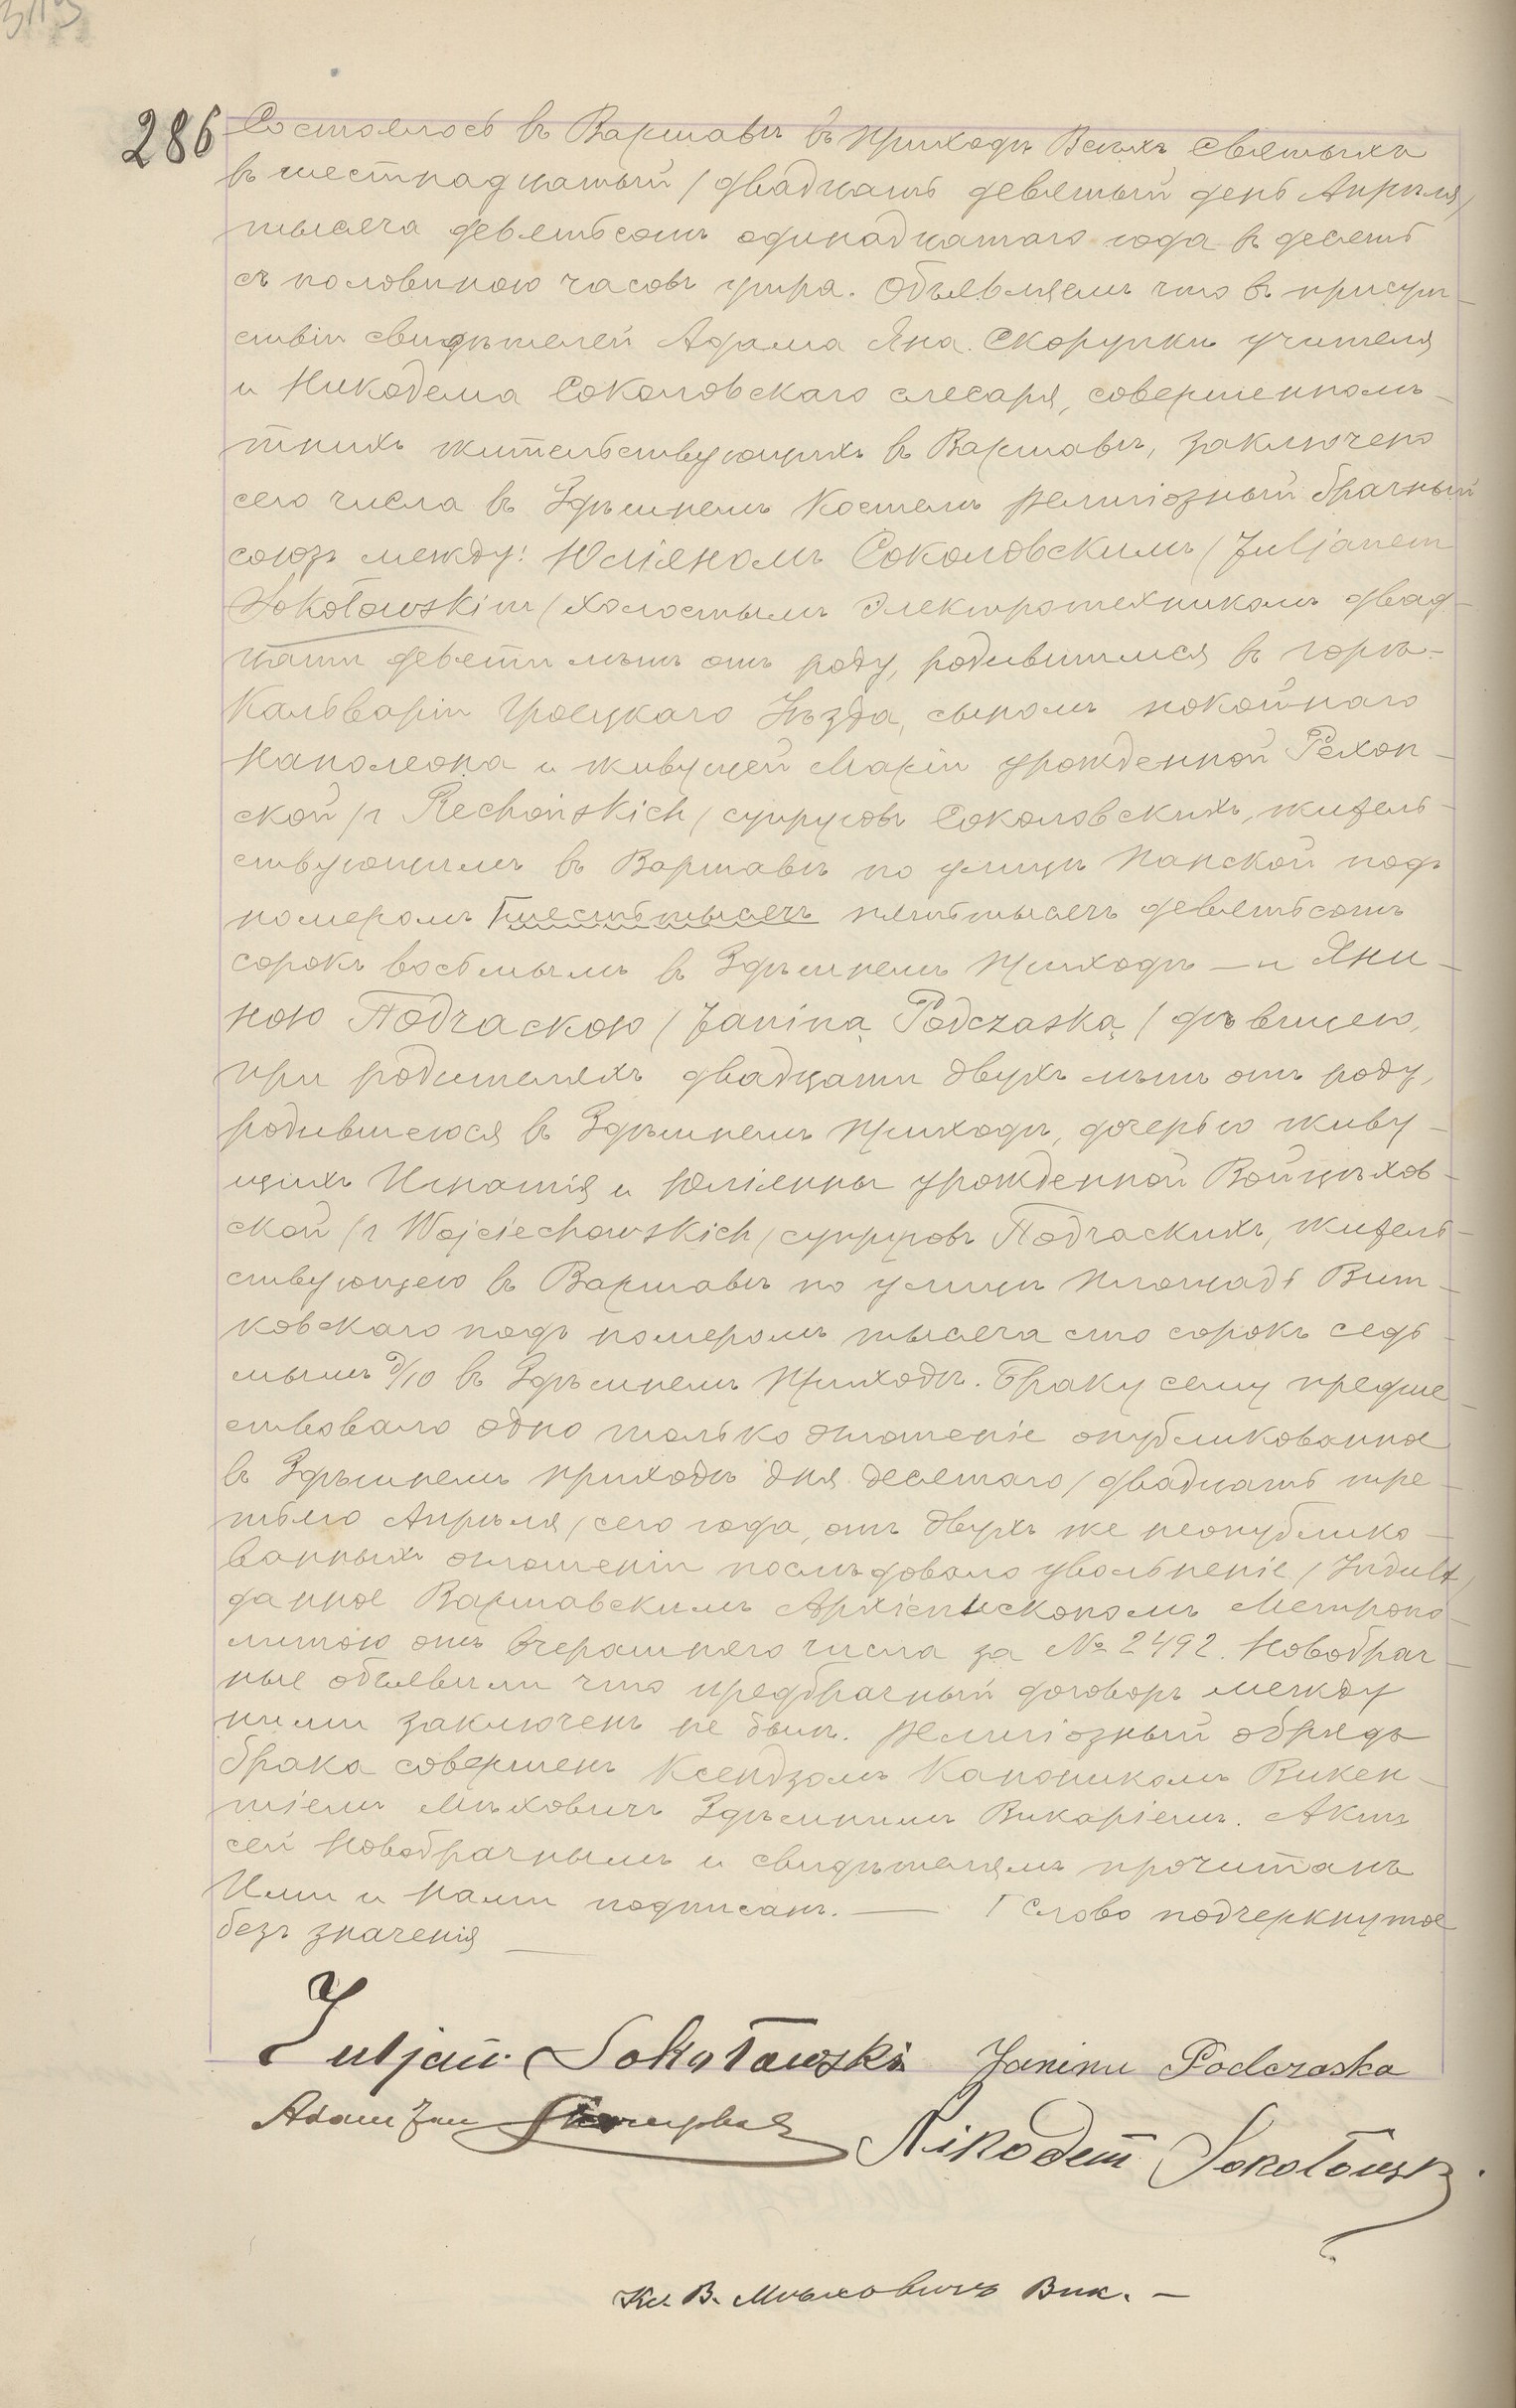 286
Состоялось въ Варшавѣ въ приходѣ Всѣхъ Святыхъ
въ шестнадцатый / двадцать девятый день Апрѣля /
тысяча девятьсотъ одинадцатаго года въ десять
съ половиною часовъ утра. Объявляемъ что въ присут-
ствіи свидѣтелей Адама Яна Скорупки учителя
и Никодема Соколовскаго слесаря, совершеннолѣ-
тнихъ жительствующихъ въ Варшавѣ, заключенъ
сего числа въ Здѣшнемъ Костелѣ религіозный брачный
союзъ между: Юліяномъ Соколовскимъ / Juljanem
Sokołowskim / холостымъ электротехникомъ двад-
цати девяти лѣтъ отъ роду, родившимся въ горѣ-
Кальваріи Гроецкаго Уѣзда, сыномъ покойнаго
Наполеона и живущей Маріи урожденной Рехон-
ской / z Rechońskich / супруговъ Соколовскихъ, житель-
ствующимъ въ Варшавѣ по улицѣ Панской подъ
номеромъ Г шестьтысячъ пятьтысячъ девятьсотъ
сорокъ восьмымъ въ Здѣшнемъ Приходѣ — и Яни-
ною Подчаскою / Janiną Podczaską / дѣвицею,
при родителяхъ двадцати двухъ лѣтъ отъ роду,
родившеюся въ Здѣшнемъ Приходѣ, дочерью живу-
щихъ Игнатія и Юліянны урожденной Войцѣхов-
ской / z Wojciechowskich / супруговъ Подчаскихъ, житель-
ствующею въ Варшавѣ по улицѣ площадь Вит-
ковскаго подъ номеромъ тысяча сто сорокъ седь-
мымъ д/10 въ Здѣшнемъ Приходѣ. Браку сему предше-
ствовало одно только оглашеніе опубликованное
въ Здѣшнемъ приходѣ дня десятаго / двадцать тре-
тьяго Апрѣля / сего года, отъ двухъ же неопублико-
ванныхъ оглашеній послѣдовало увольненіе / Indult /
данное Варшавскимъ Архіепископомъ Метропо-
литою отъ вчерашняго числа за № 2492. Новобрач-
ные объявили что предбрачный договоръ между
ними заключенъ не былъ. Религіозный обрядъ
брака совершенъ Ксендзомъ Каноникомъ Викен-
тіемъ Мѣховичъ Здѣшнимъ Викаріемъ. Актъ
сей Новобрачнымъ и свидѣтелямъ прочитанъ
Ими и Нами подписанъ. — Г Слово подчеркнутое
безъ значенія —
Juljan Sokołowski Janina Podczaska
Adam Jan Skorupka Nikodem Sokołowski
Кс. В. Мѣховичъ Вик. —